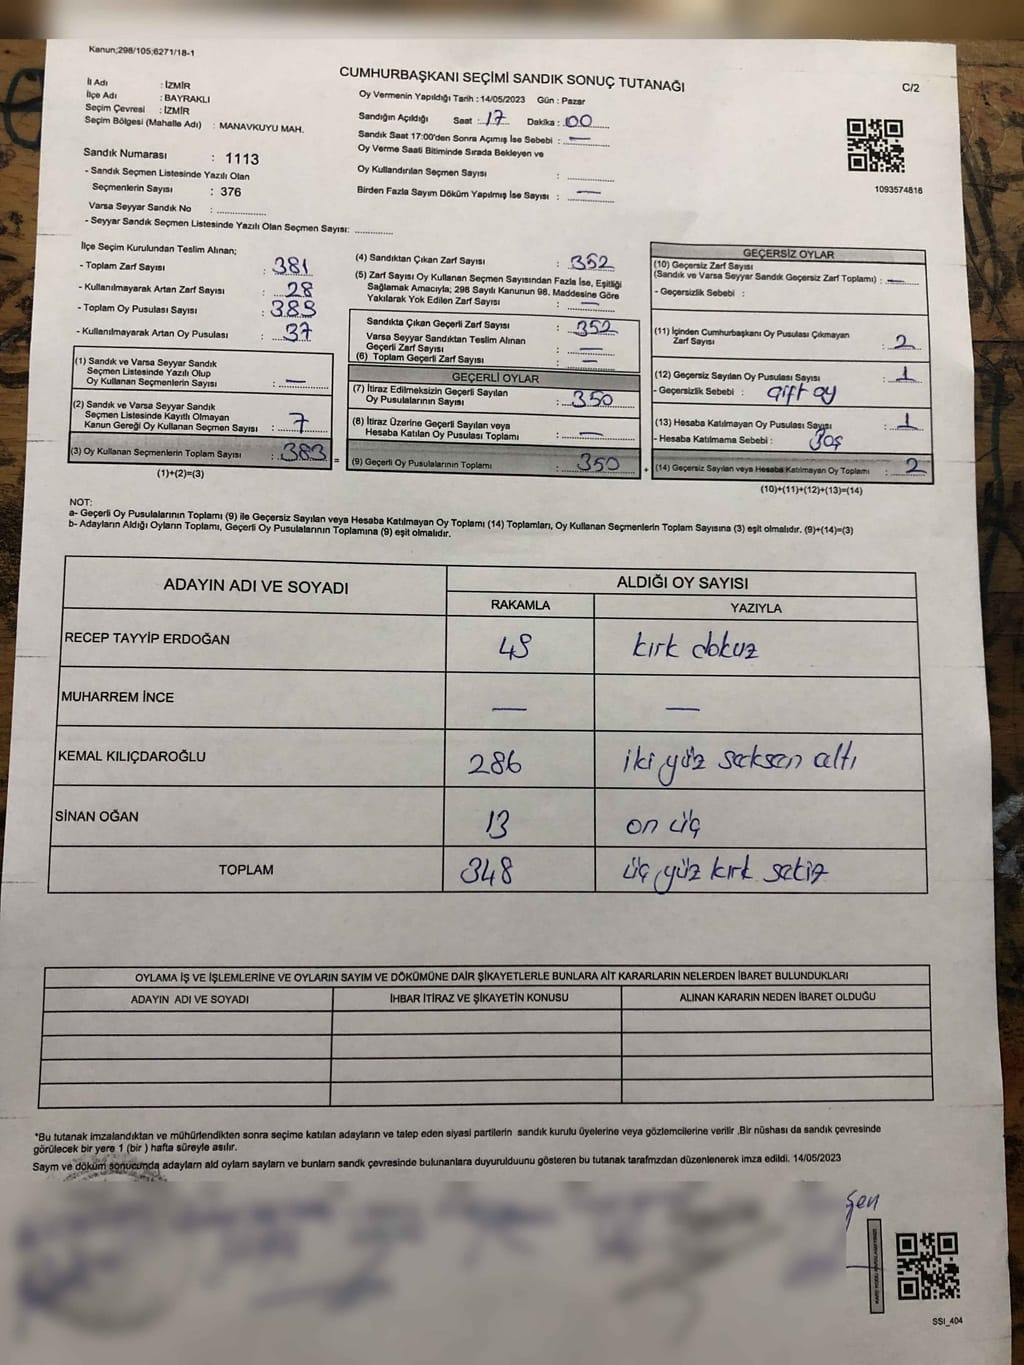 Kanun;298/105;6271/18-1
CUMHURBAŞKANI SEÇİMİ SANDIK SONUÇ TUTANAĞI
C/2
İl Adı : İZMİR
İlçe Adı : BAYRAKLI
Seçim Çevresi : İZMİR
Seçim Bölgesi (Mahalle Adı) : MANAVKUYU MAH.
Sandık Numarası : 1113
- Sandık Seçmen Listesinde Yazılı Olan
Seçmenlerin Sayısı : 376
Varsa Seyyar Sandık No :
- Seyyar Sandık Seçmen Listesinde Yazılı Olan Seçmen Sayısı:
Oy Vermenin Yapıldığı Tarih : 14/05/2023 Gün : Pazar
Sandığın Açıldığı Saat : 17 Dakika : 00
Sandık Saat 17:00'den Sonra Açımış İse Sebebi : —
Oy Verme Saati Bitiminde Sırada Bekleyen ve
Oy Kullandırılan Seçmen Sayısı :
Birden Fazla Sayım Döküm Yapılmış İse Sayısı : —
1093574816
İlçe Seçim Kurulundan Teslim Alınan;
- Toplam Zarf Sayısı : 381
- Kullanılmayarak Artan Zarf Sayısı : 28
- Toplam Oy Pusulası Sayısı : 389
- Kullanılmayarak Artan Oy Pusulası : 37
(1) Sandık ve Varsa Seyyar Sandık
Seçmen Listesinde Yazılı Olup
Oy Kullanan Seçmenlerin Sayısı : —
(2) Sandık ve Varsa Seyyar Sandık
Seçmen Listesinde Kayıtlı Olmayan
Kanun Gereği Oy Kullanan Seçmen Sayısı : 7
(3) Oy Kullanan Seçmenlerin Toplam Sayısı : 383 =
(1)+(2)=(3)
(4) Sandıktan Çıkan Zarf Sayısı : 352
(5) Zarf Sayısı Oy Kullanan Seçmen Sayısından Fazla İse, Eşitliği
Sağlamak Amacıyla; 298 Sayılı Kanunun 98. Maddesine Göre
Yakılarak Yok Edilen Zarf Sayısı : —
Sandıkta Çıkan Geçerli Zarf Sayısı : 352
Varsa Seyyar Sandıktan Teslim Alınan
Geçerli Zarf Sayısı : —
(6) Toplam Geçerli Zarf Sayısı : —
GEÇERLİ OYLAR
(7) İtiraz Edilmeksizin Geçerli Sayılan
Oy Pusulalarının Sayısı : 350
(8) İtiraz Üzerine Geçerli Sayılan veya
Hesaba Katılan Oy Pusulası Toplamı : —
(9) Geçerli Oy Pusulalarının Toplamı : 350 +
GEÇERSİZ OYLAR
(10) Geçersiz Zarf Sayısı
(Sandık ve Varsa Seyyar Sandık Geçersiz Zarf Toplamı) : —
- Geçersizlik Sebebi :
(11) İçinden Cumhurbaşkanı Oy Pusulası Çıkmayan
Zarf Sayısı : 2
(12) Geçersiz Sayılan Oy Pusulası Sayısı : 1
- Geçersizlik Sebebi : çift oy
(13) Hesaba Katılmayan Oy Pusulası Sayısı : 1
- Hesaba Katılmama Sebebi : Boş
(14) Geçersiz Sayılan veya Hesaba Katılmayan Oy Toplamı : 2
(10)+(11)+(12)+(13)=(14)
NOT:
a- Geçerli Oy Pusulalarının Toplamı (9) ile Geçersiz Sayılan veya Hesaba Katılmayan Oy Toplamı (14) Toplamları, Oy Kullanan Seçmenlerin Toplam Sayısına (3) eşit olmalıdır. (9)+(14)=(3)
b- Adayların Aldığı Oyların Toplamı, Geçerli Oy Pusulalarının Toplamına (9) eşit olmalıdır.
ADAYIN ADI VE SOYADI
ALDIĞI OY SAYISI
RAKAMLA YAZIYLA
RECEP TAYYİP ERDOĞAN 49 kırk dokuz
MUHARREM İNCE — —
KEMAL KILIÇDAROĞLU 286 iki yüz seksen altı
SİNAN OĞAN 13 on üç
TOPLAM 348 üç yüz kırk sekiz
OYLAMA İŞ VE İŞLEMLERİNE VE OYLARIN SAYIM VE DÖKÜMÜNE DAİR ŞİKAYETLERLE BUNLARA AİT KARARLARIN NELERDEN İBARET BULUNDUKLARI
ADAYIN ADI VE SOYADI İHBAR İTİRAZ VE ŞİKAYETİN KONUSU ALINAN KARARIN NEDEN İBARET OLDUĞU
*Bu tutanak imzalandıktan ve mühürlendikten sonra seçime katılan adayların ve talep eden siyasi partilerin sandık kurulu üyelerine veya gözlemcilerine verilir .Bir nüshası da sandık çevresinde
görülecek bir yere 1 (bir ) hafta süreyle asılır.
Saym ve döküm sonucunda adaylarn ald oylarn saylarn ve bunlarn sandk çevresinde bulunanlara duyurulduunu gösteren bu tutanak tarafmzdan düzenlenerek imza edildi. 14/05/2023
Şen
SSI_404